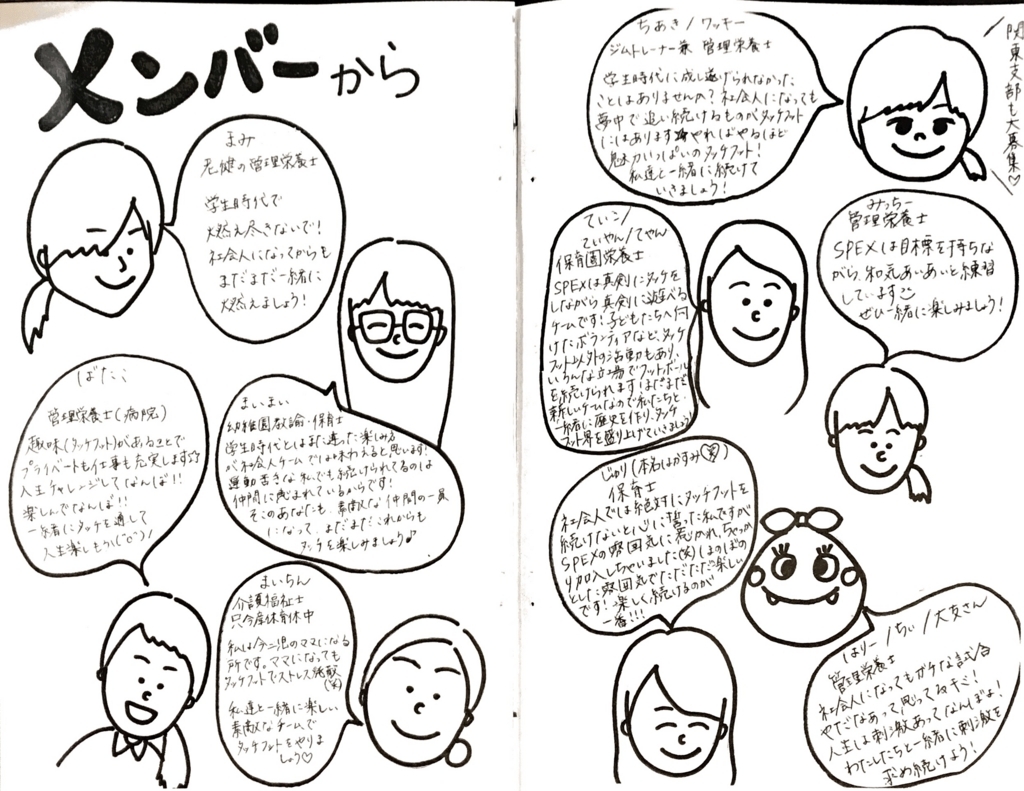 メンバーから
まみ
老健の管理栄養士
学生時代で
燃え尽きないで!
社会人になってからも
まだまだ一緒に
燃えましょう!
ばたこ
管理栄養士(病院)
趣味(タッチフット)があることで
プライベートも仕事も充実します☆
人生チャレンジしてなんぼ!!
楽しんでなんぼ!!
一緒にタッチを通して
人生楽しもう(^o^)/
まいまい
幼稚園教諭・保育士
学生時代とはまた違った楽しみ方
が社会人チームでは味わえると思います!
運動苦手な私でも続けられてるのは
仲間に恵まれているからです!
そこのあなたも、素敵な仲間の一員
になって、まだまだこれからも
タッチを楽しみましょう♪
まいちん
介護福祉士
只今産休育休中
私は今二児のママになる
所です。ママになっても
タッチフットでストレス発散
(笑)
私達と一緒に楽しい
素敵なチームで
タッチフットをやりま
しょう♡
関東支部も大募集♡
ちあき/ワッキー
ジムトレーナー兼 管理栄養士
学生時代に成し遂げられなかった
ことはありませんか?社会人になっても
夢中で追い続けるものがタッチフット
にはあります☆やればやるほど
魅力いっぱいのタッチフット!
私達と一緒に続けて
いきましょう!
みっちー
管理栄養士
SPEXは目標を持ちな
がら、和気あいあいと練習
しています
ぜひ一緒に楽しみましょう!
ていこ/
ていやん/てやん
保育園栄養士
SPEXは真剣にタッチを
しながら真剣に遊べる
チームです!子どもたちへ向
けたボランティアなど、タッチ
フット以外の活動もあり、
いろんな立場でフットボール
を続けられます!まだまだ
新しいチームなので私たちと
一緒に歴史を作り、タッチ
フット界を盛り上げていきましょう
じゅり(本名はかすみ(笑))
保育士
社会人では絶対にタッチフットを
続けないと心に誓った私ですが
SPEXの雰囲気に惹かれ、ちゃっか
り加入しちゃいました(笑)ほのぼの
とした雰囲気でただただ楽しい
です!楽しく続けるのが
一番!!!
はりー/ちぃ/大文さん
管理栄養士
社会人になってもガチな試合
やだなあって思ってるキミ!
人生は刺激あってなんぼよ!
わたしたちと一緒に刺激を
求め続けよう!